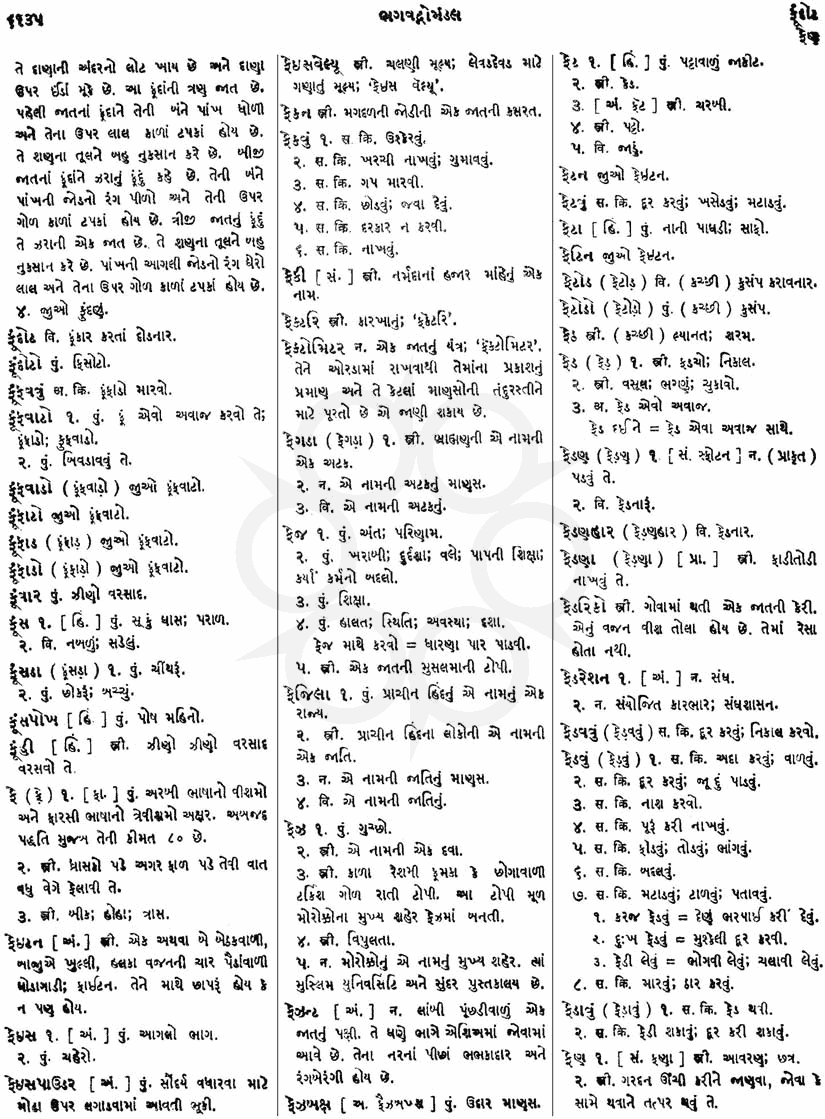 ૬૧૩૫
ભગવદ્ગોમંડલ
ફૂંદોટ
ફેણ
તે દાણાની અંદરનો લોટ ખાય છે અને દાણા
ઉપર ઈંડાં મૂકે છે. આ ફૂંદાંની ત્રણ જાત છે.
પહેલી જાતનાં ફૂંદાને તેની બંને પાંખ ધોળી
અને તેના ઉપર લાલ કાળાં ટપકાં હોય છે.
તે શણના તૂલને બહુ નુકસાન કરે છે. બીજી
જાતનાં ફૂંદાંને ઝરાનું ફૂંદું કહે છે. તેની બંને
પાંખની જોડનો રંગ પીળો અને તેની ઉપર
ગોળ કાળાં ટપકાં હોય છે. ત્રીજી જાતનું ફૂંદું
તે ઝરાની એક જાત છે. તે શણના તૂલને બહુ
નુકસાન કરે છે. પાંખની આગલી જોડનો રંગ ઘેરો
લાલ અને તેના ઉપર ગોળ કાળાં ટપકાં હોય છે.
૪. જુઓ ફુંદણું.
ફૂંદોટ વિ. ફૂંકાર કરતાં દોડનાર.
ફૂંદોટો પું. ફિસોટો.
ફૂંફવવું અ. ક્રિ. ફૂંફાડો મારવો.
ફૂંફવાટો ૧. પું. ફૂં એવો અવાજ કરવો તે;
ફૂંફાડો; ફુફવાડો.
૨. પું. ખિવડાવવું તે.
ફૂંફવાડો ( ફૂંફવાડ઼ો ) જુઓ ફૂંફવાટો.
ફૂંફાટો જુઓ ફૂંફવાટો.
ફૂંફાડ ( ફૂંફાડ઼ ) જુઓ ફૂંફવાટો.
ફૂંફાડો ( ફૂંફાડ઼ો ) જુઓ ફૂંફવાટો.
ફૂંવાર પું. ઝીણો વરસાદ.
ફૂંસ ૧. [ હિં. ] પું. સૂકું ઘાસ; પરાળ.
૨. વિ. નબળું; સડેલું.
ફૂંસડા ( ફૂંસડ઼ા ) ૧. પું. ચીંથરૂં.
૨. પું. છોકરૂં; બચ્ચું.
ફૂંસપોખ [ હિં. ] પું. પોષ મહિનો.
ફૂંહી [ હિં. ] સ્ત્રી. ઝીણો ઝીણો વરસાદ
વરસવો તે.
ફે ( ફ઼ે ) ૧. [ ફા. ] પું. અરબી ભાષાનો વીશમો
અને ફારસી ભાષાનો ત્રેવીશમો અક્ષર. અબજદ
પદ્ધતિ મુજબ તેની કીમત ૮૦ છે.
૨. સ્ત્રી. ધ્રાસકો પડે અગર ફાળ પડે તેવી વાત
બધુ વેગે ફેલાવી તે.
૩. સ્ત્રી. બીક; હોહા; ત્રાસ.
ફેઇટન [ અં. ] સ્ત્રી. એક અથવા બે બેઠકવાળી,
બાજુએ ખુલ્લી, હલકા વજનની ચાર પૈડાંવાળી
ઘોડાગાડી; ફાઈટન. તેને માથે છાપરૂં હોય કે
ન પણ હોય.
ફેઇસ ૧. [ અં. ] પું. આગલો ભાગ.
૨. પું. ચહેરો.
ફેઇસપાઉડર [ અં. ] પું. સૌંદર્ય વધારવા માટે
મોઢા ઉપર લગાડવામાં આવતી ભૂકી.
ફેઇસવેલ્યૂ સ્ત્રી. ચલણી મૂલ્ય; લેવડદેવડ માટે
ગણાતું મૂલ્ય; ‘ફેઇસ વૅલ્યૂ’.
ફેકન સ્ત્રી. મગદળની જોડીની એક જાતની કસરત.
ફેકવું ૧. સ. ક્રિ. ઉશ્કેરવું.
૨. સ. ક્રિ. ખરચી નાખવું; ગુમાવવું.
૩. સ. ક્રિ. ગપ મારવી.
૪. સ. ક્રિ. છોડવું; જવા દેવું.
૫. સ. ક્રિ. દરકાર ન કરવી.
૬. સ. ક્રિ. નાખવું.
ફેકી [ સં. ] સ્ત્રી. નર્મદાનાં હજાર માંહેનું એક
નામ.
ફેક્ટરિ સ્ત્રી. કારખાનું; ‘ફૅક્ટરિ’.
ફેક્ટોમિટર ન. એક જાતનું યંત્ર; ‘ફૅક્ટોમિટર’.
તેને ઓરડામાં રાખવાથી તેમાંના પ્રકાશનું
પ્રમાણ અને તે કેટલાં માણસોની તંદુરસ્તીને
માટે પૂરતો છે એ જાણી શકાય છે.
ફેગડા ( ફેગડ઼ા ) ૧. સ્ત્રી. બ્રાહ્મણની એ નામની
એક અટક.
૨. ન. એ નામની અટકનું માણસ.
૩. વિ. એ નામની અટકનું.
ફેજ ૧. પું. અંત; પરિણામ.
૨. પું. ખરાબી; દુર્દશા; વલે; પાપની શિક્ષા;
કર્યાં કર્મનો બદલો.
૩. પું. શિક્ષા.
૪. પું. હાલત; સ્થિતિ; અવસ્થા; દશા.
ફેજ માથે કરવો = ધારણા પાર પાડવી.
૫. સ્ત્રી. એક જાતની મુસલમાની ટોપી.
ફેજિલા ૧. પું. પ્રાચીન હિંદનું એ નામનું એક
રાજ્ય.
૨. સ્ત્રી. પ્રાચીન હિંદના લોકોની એ નામની
એક જાતિ.
૩. ન. એ નામની જાતિનું માણસ.
૪. વિ. એ નામની જાતિનું.
ફેઝ ૧. પું. ગુચ્છો.
૨. સ્ત્રી. એ નામની એક દવા.
૩. સ્ત્રી. કાળા રેશમી ફૂમકા કે છોગાવાળી
ટર્કિશ ગોળ રાતી ટોપી. આ ટોપી મૂળ
મોરોક્કોના મુખ્ય શહેર ફેઝમાં બનતી.
૪. સ્ત્રી. વિપુલતા.
૫. ન. મોરોક્કોનું એ નામનું મુખ્ય શહેર. ત્યાં
મુસ્લિમ યુનિવર્સિટિ અને સુંદર પુસ્તકાલય છે.
ફેઝન્ટ [ અં. ] ન. લાંબી પૂંછડીવાળું એક
જાતનું પક્ષી. તે ઘણે ભાગે એશિઆમાં જોવામાં
આવે છે. તેના નરનાં પીંછાં ભભકાદાર અને
રંગબેરંગી હોય છે.
ફેઝબક્ષ [ અ. ફૈઝબખ્શ ] પું. ઉદાર માણસ.
ફેટ ૧. [ હિં. ] પું. પટ્ટાવાળું જાકીટ.
૨. સ્ત્રી. કેડ.
૩. [ અં. ફૅટ ] સ્ત્રી. ચરબી.
૪. સ્ત્રી. પટ્ટો.
૫. વિ. જાડું.
ફેટન જુઓ ફેઇટન.
ફેટવું સ. ક્રિ. દૂર કરવું; ખસેડવું; મટાડવું.
ફેટા [ હિં. ] પું. નાની પાઘડી; સાફો.
ફેટિન જુઓ ફેઇટન.
ફેટોડ ( ફેટોડ઼ ) વિ. ( કચ્છી ) કુસંપ કરાવનાર.
ફેટોડો ( ફેટોડ઼ો ) પું. ( કચ્છી ) કુસંપ.
ફેડ સ્ત્રી. ( કચ્છી ) લ્યાનત; શરમ.
ફેડ ( ફેડ઼ ) ૧. સ્ત્રી. કડચો; નિકાલ.
૨. સ્ત્રી. વસૂલ; ભરણું; ચુકાવો.
૩. અ. ફેડ એવો અવાજ.
ફેડ દઈને = ફેડ એવા અવાજ સાથે.
ફેડણ ( ફેડ઼ણ ) ૧. [ સં. સ્ફોટન ] ન. ( પ્રાકૃત )
પડવું તે.
૨. વિ. ફેડનારૂં.
ફેડણહાર ( ફેડ઼ણહાર ) વિ. ફેડનાર.
ફેડણા ( ફેડ઼ણા ) [ પ્રા. ] સ્ત્રી. ફાડીતોડી
નાખવું તે.
ફેડરિકો સ્ત્રી. ગોવામાં થતી એક જાતની કેરી.
એનું વજન વીશ તોલા હોય છે. તેમાં રેસા
હોતા નથી.
ફેડરેશન ૧. [ અં. ] ન. સંઘ.
૨. ન. સંયોજિત કારભાર; સંઘશાસન.
ફેડવવું ( ફેડ઼વવું ) સ. ક્રિ. દૂર કરવું; નિકાલ કરવો.
ફેડવું ( ફેડ઼વું ) ૧. સ. ક્રિ. અદા કરવું; વાળવું.
૨. સ. ક્રિ. દૂર કરવું; જૂદું પાડવું.
૩. સ. ક્રિ. નાશ કરવો.
૪. સ. ક્રિ. પૂરૂં કરી નાખવું.
૫. સ. ક્રિ. ફોડવું; તોડવું; ભાંગવું.
૬. સ. ક્રિ. બદલવું.
૭. સ. ક્રિ. મટાડવું; ટાળવું; પતાવવું.
૧. કરજ ફેડવું = દેણું ભરપાઈ કરી દેવું.
૨. દુઃખ ફેડવું = મુશ્કેલી દૂર કરવી.
૩. ફેડી લેવું = ભોગવી લેવું; ચલાવી લેવું.
૮. સ. ક્રિ. મારવું; ઠાર કરવું.
ફેડાવું ( ફેડ઼ાવું ) ૧. સ. ક્રિ. ફેડ થવી.
૨. સ. ક્રિ. ફેડી શકાવું; દૂર કરી શકાવું.
ફેણ ૧. [ સં. ફણા ] સ્ત્રી. આવરણ; છત્ર.
૨. સ્ત્રી. ગરદન ઊંચી કરીને જાણવા, જોવા કે
સામે થવાને તત્પર થવું તે.